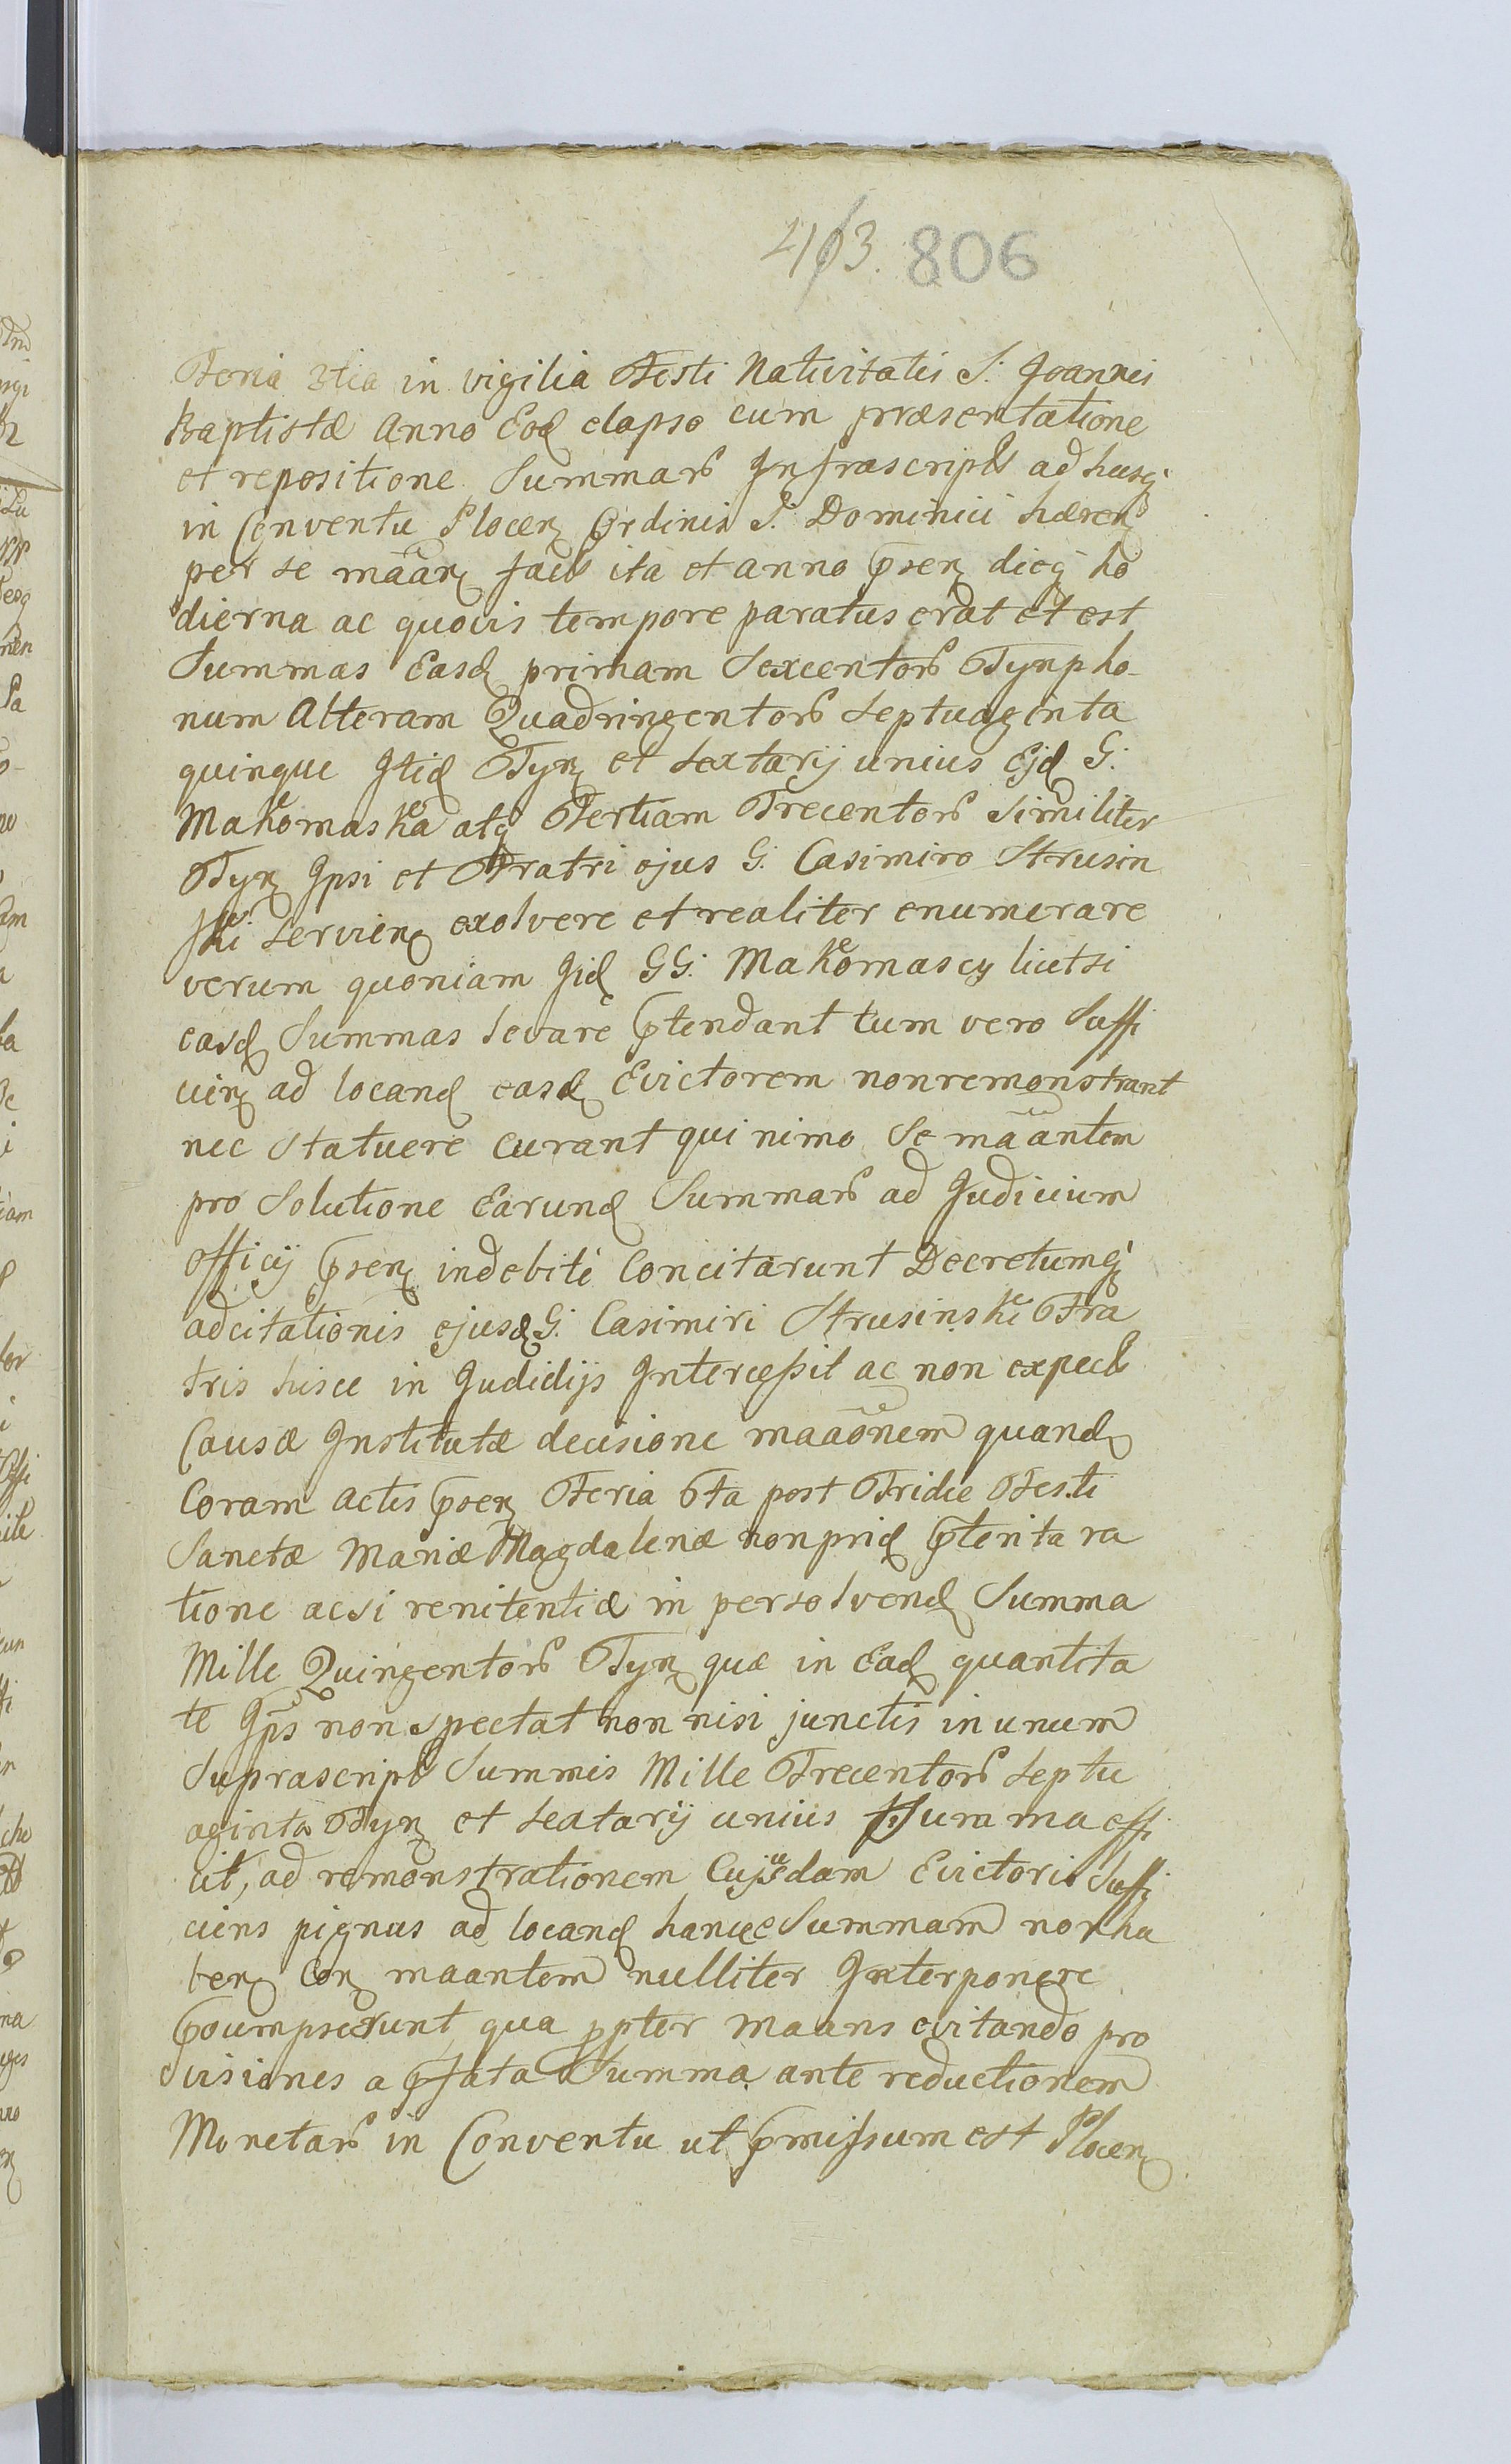 413. 806
Feria 3tia in vigilia Festi Nativitatis S: Joannis
Baptistæ Anno Eod elapso cum præsentatione
et repositione Summarũ Infrascript adhucq
in Conventu Plocen Ordinis S: Dominici hæren
per se mããn fact ita et anno p̃sen dieq ho
dierna ac quovis tempore paratus erat et est
Summas Easd primam Sexcentorũ Tynpho-
num Alteram Quadringentorũ Septuaginta
quinque Itid Tyn et sextarij unius Ejd G:
Makomaska atq Tertiam Trecentorũ Similiter
Tyn Ipsi et Fratri ejus G: Casimiro Strusin
ski servien exolvere et realiter enumerare
verum quoniam Iid GG: Makomascy licet si
easd Summas levare p̃tendant tum vero Suffi
cien ad locand easd Evictorem non remonstrant
nec Statuere curant qui nimo Se mããntem
pro Solutione Earund Summarũ ad Judicium
officij p̃sen indebite Concitarunt Decretumq
adcitationis ejusd G: Casimiri Strusinski Fra
tris hisce in Judicijs Intercessit ac non expect
Causæ Institutæ decisione maãonem quand
Coram Actis p̃sen Feria 6ta post Fridie Festi
Sanctæ Mariæ Magdalenæ non prid p̃terita ra
tione acsi renitentiæ in persolvend Summa
Mille Quingentorũ Tyn quæ in Ead quantita
te Ip̃s non Spectat non nisi junctis in unum
Suprascript Summis Mille Trecentorũ Septu
aginta Tyn et sextarij unius Summa effi
cit, ad remonstrationem Cujusdam Evictoris Suffi
ciens pignus ad locand hancce Summam non ha
ben Con maantem nulliter Interponere
p̃sumpserunt qua propter maans evitando pro
visiones a p̃fata Summa ante reductionem
Monetarũ in Conventu ut p̃missum est Plocen